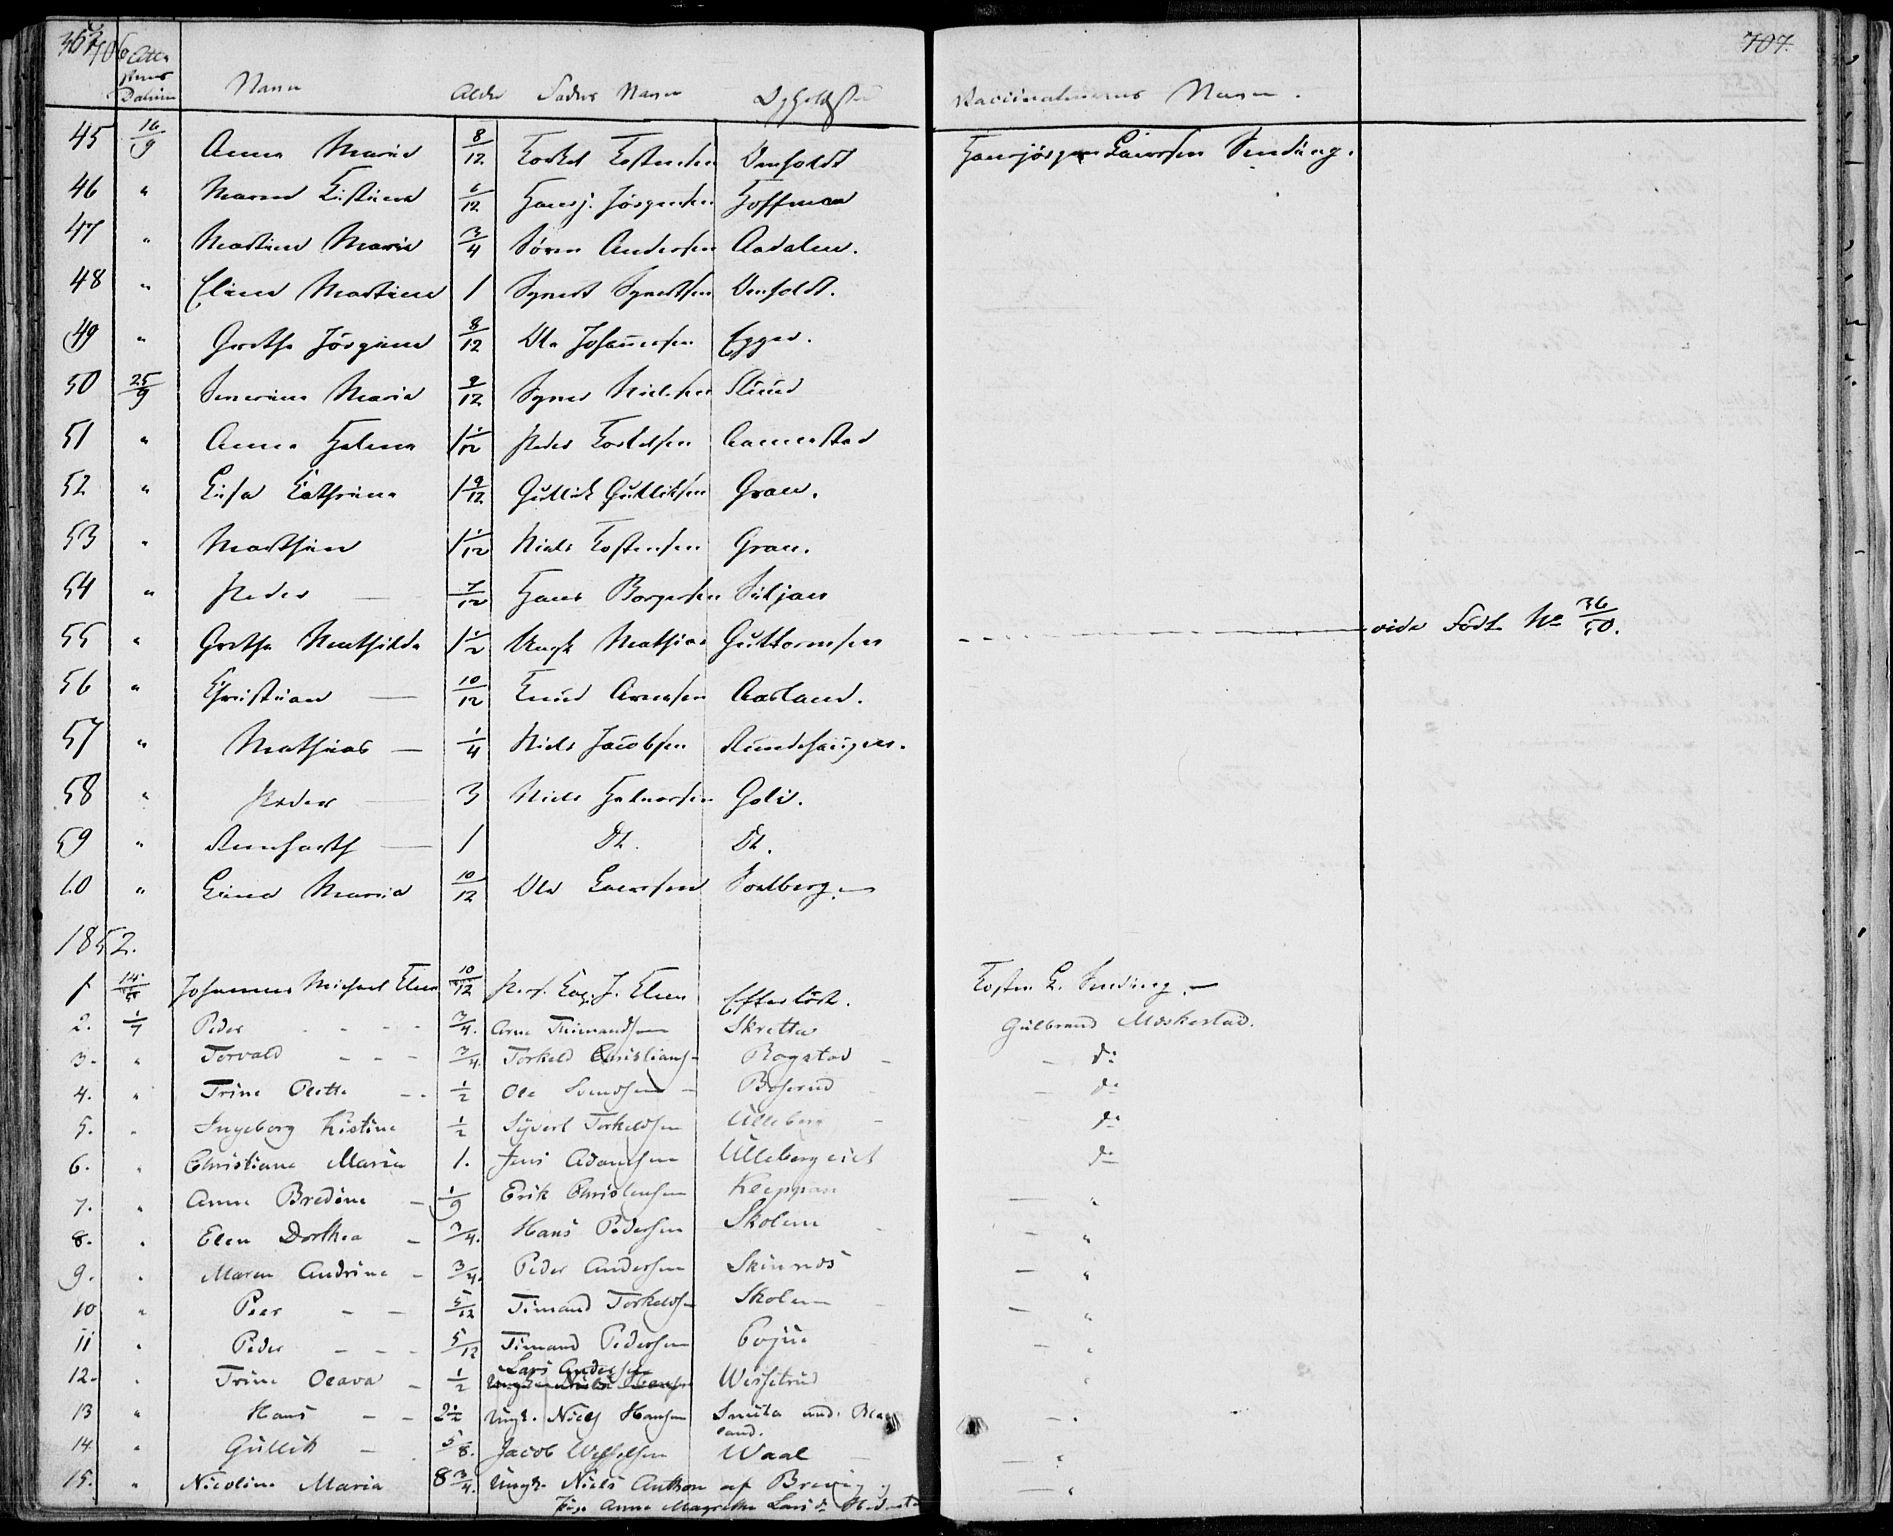 706 Attestens Datum Navn Alder Faders Navn Opholdsted Vaccinateurens Navn. 707.
45 16/9 Anne Marie 8/12 Torkel Tostensen Omholdt Hansjörgen Larssen Sending.
46 " Maren Kistine 6/12 Hansj. Jörgensen Hoffman
47 " Martine Marie 3/4 Sören Andersen Aadalen.
48 " Eline Martine 1 Synert Synertsen Omholdt.
49 " Grethe Jörgine 8/12 Ole Johannesen Egger.
50 25/9 Severine Marie 9/12 Nielsen
51 " Anne Helene 1 1/12 Peder Torkelsen
52 " Lisa Cathrine 1 9/12 Gullik Gulliksen Gran.
53 " Marthine 1 1/12 Niels Tostensen Gran.
54 " Peder — 7/12 Hans Borgersen Siljan
55 " Grethe Mathilde 1 1/2 Ungk Mathias Guttormsen vide Födt No 36/50.
56 " Christian — 10/12 Knud Arnesen Aasland.
57 " Mathias — 1/4 Niels Jacobsen Rundhaugen.
58 " Peder — 3 Niels Halvorsen Goli.
59 " — 1 Dt. Dt.
60 " Lina Maria 10/12 Ole Larssen Solberg.
1852.
1 14/5 Johannes Michael Elsen 10/12 J. Elsen Efterlöst. Tosten L. Sending.
2. 1/7 Peder 3/4. Arne Thimandsen Skretta Gulbrand Moskestad.
3. " Torvald 3/4. Torkeld Christians Rogstad — do
4. " Trine Olette 1/2 Ole Svendsen — Boserud — do
5. " Ingeborg Kistine 1/2 Syvert Torkeldsen Ulleberg do
6. " Christiane Maria 1. Jens Adamsen Ullebergeiet do
7. " Anne Bredine 1/9 Erik Christensen Kleppan — "
8. " Elen Dorthea 3/4. Hans Pedersen Skolem — "
9. " Maren Andrine 3/4. Peder Andersen Skinnes — "
10 " Peer 5/12 Timand Torkelds Skolem — "
11 " Peder 5/12 Timand Pedersen Bojue — "
12. " Trine Oleava 1/2 Lars Andersen Wissetrud "
13 " Hans 2 1/2 Ungk. Niels Hansen und. — "
land.
14 " Gullik 5/8. Jacob Wesselsen Waal — "
15. " Nicoline Maria 8 3/4. Ungk. Niels Anthon af Brevig — "
Pige Anne Magrethe Larsd.